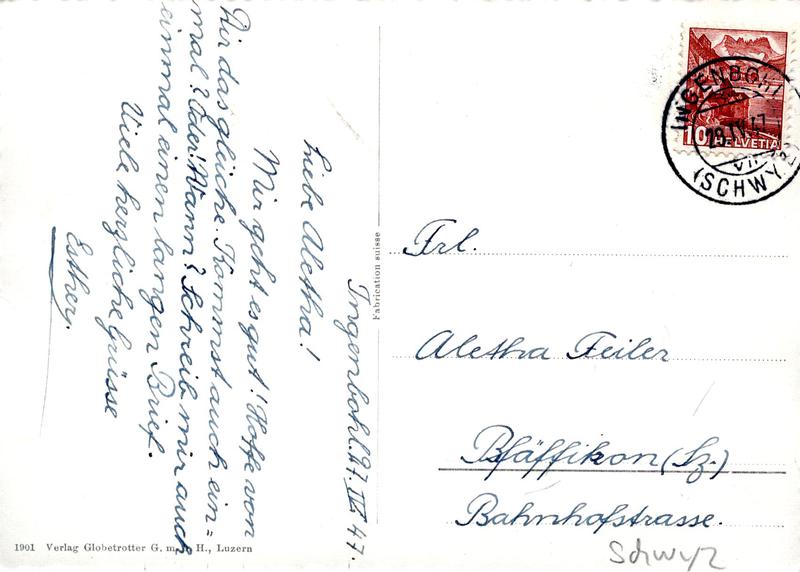 Ingenbohl. 27. IV. 47.
Liebe Aletha!
Mir geht es gut! Hoffe von
Dir das gleiche. Kommst auch ein=
mal? Oder! Wann? Schreib mir auch
einmal einen langen Brief.
Viele herzliche Grüsse
Esther.
1901 Verlag Globetrotter G. m. H., Luzern
Fabrication suisse
INGENBOHL
29.IV.47
(SCHWYZ)
10 HELVETIA
Frl.
Aletha Feiler
Pfäffikon (Sz.)
Bahnhofstrasse.
Schwyz